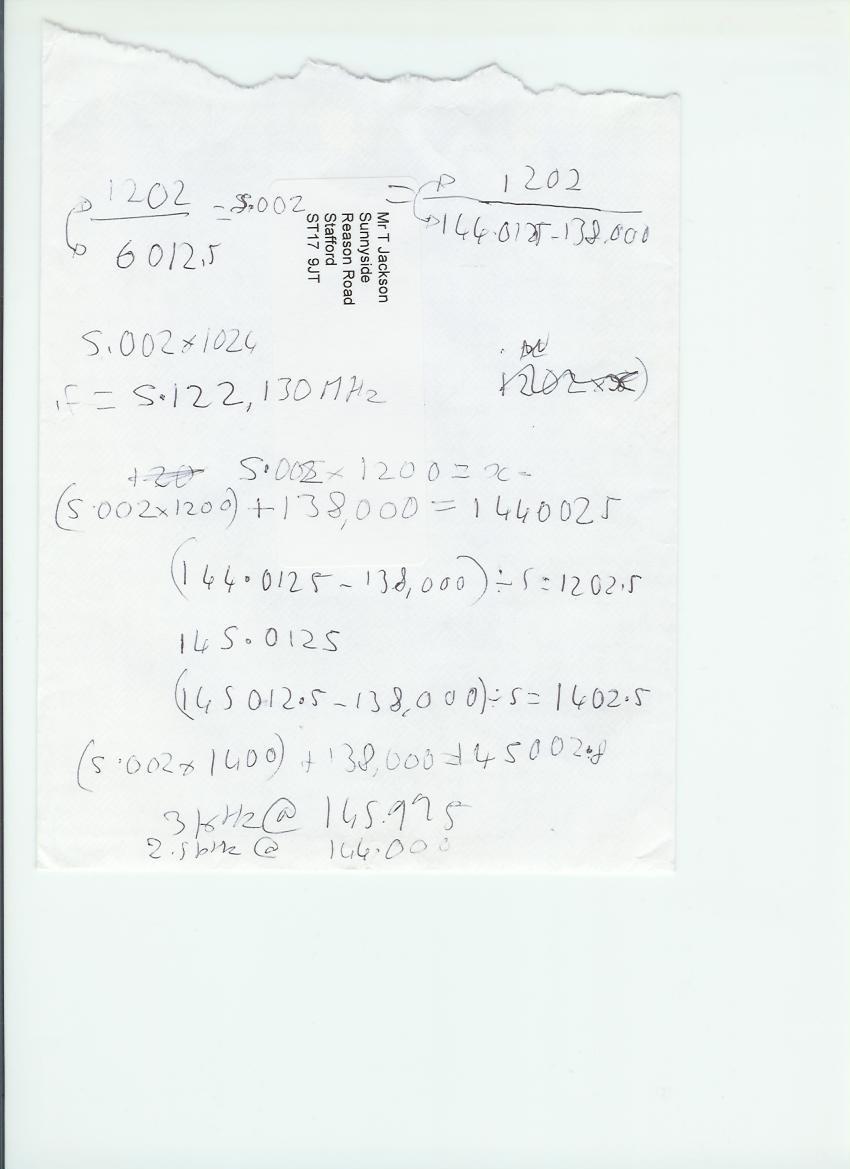 1202 = 5.002 = 1202
6012.5 144.0125-138,000
Mr T Jackson
Sunnyside
Reason Road
Stafford
ST17 9JT
5.002×1024
F = 5.122,130MHz
1202×
120 5.002×1200=x=
(5.002×1200)+138,000=1440025
(144.0125-138,000)÷5=1202.5
145.0125
(145012.5-138,000)÷5=1402.5
(5.002×1400)+138,000=145002.8
3kHz@ 145.975
2.5kHz@ 144.000